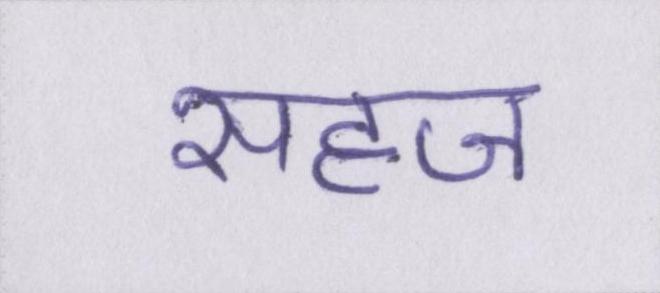 सहज